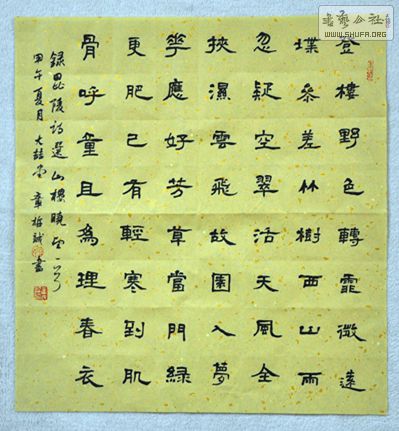 登樓野色轉霏微遠
堞參差竹樹西山雨
忽疑空翠活天風全
挾濕雲飛故園入夢
華應好芳草當門綠
更肥已有輕寒到肌
骨呼童且為理春衣
録毘陵詩選山樓曉望一首
甲午夏月 大 章 誠 書
書藝公社
WWW.SHUFA.ORG